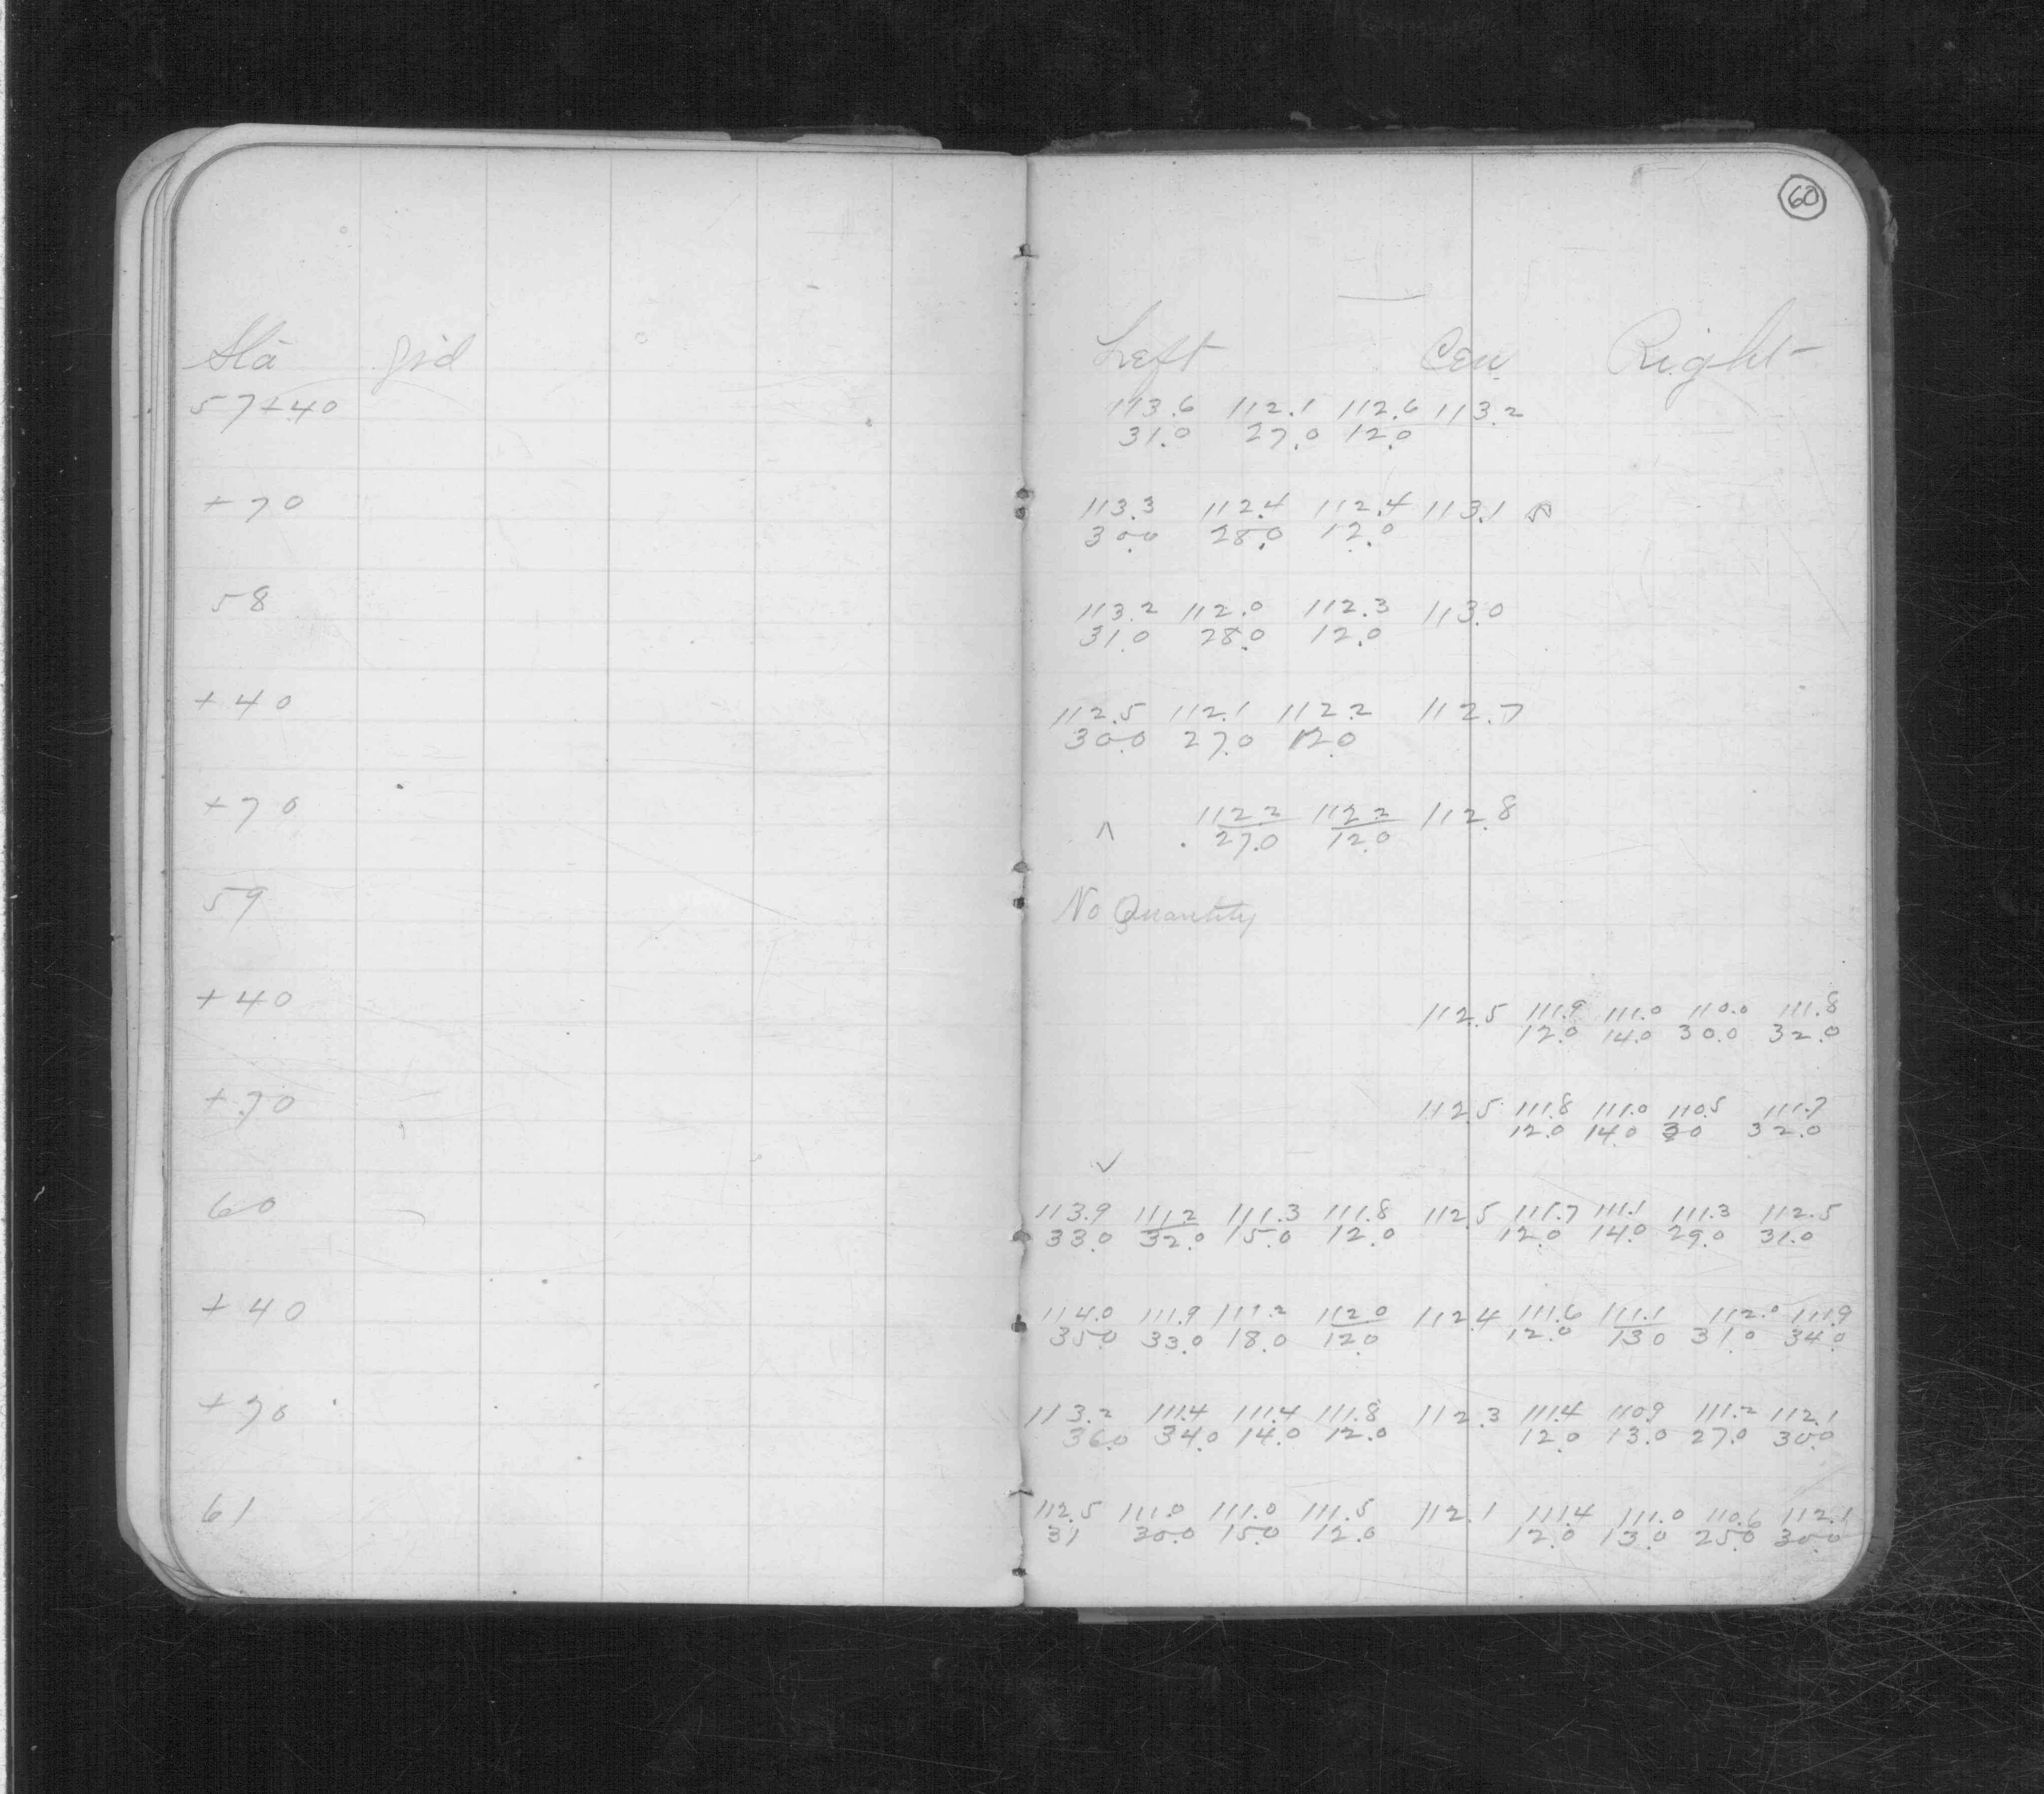 60
Sta Grd Left Cen Right
57+40 113.6 112.1 112.6 113.2
31.0 27.0 12.0
+70 113.3 112.4 112.4 113.1
30.0 28.0 12.0
58 113.2 112.0 112.3 113.0
31.0 28.0 12.0
+40 112.5 112.1 112.2 112.7
30.0 27.0 12.0
+70 112.2 112.2 112.8
27.0 12.0
59 No Quantity
+40 112.5 111.9 111.0 110.0 111.8
12.0 14.0 30.0 32.0
+70 112.5 111.8 111.0 110.5 111.7
12.0 14.0 30 32.0
60 113.9 111.2 111.3 111.8 112.5 111.7 111.1 111.3 112.5
33.0 32.0 15.0 12.0 12.0 14.0 29.0 31.0
+40 114.0 111.9 111.2 112.0 112.4 111.6 111.1 112.0 111.9
35.0 33.0 18.0 12.0 12.0 13.0 31.0 34.0
+70 113.2 111.4 111.4 111.8 112.3 111.4 110.9 111.2 112.1
36.0 34.0 14.0 12.0 12.0 13.0 27.0 30.0
61 112.5 111.0 111.0 111.5 112.1 111.4 111.0 110.6 112.1
31 30.0 15.0 12.0 12.0 13.0 25.0 30.0